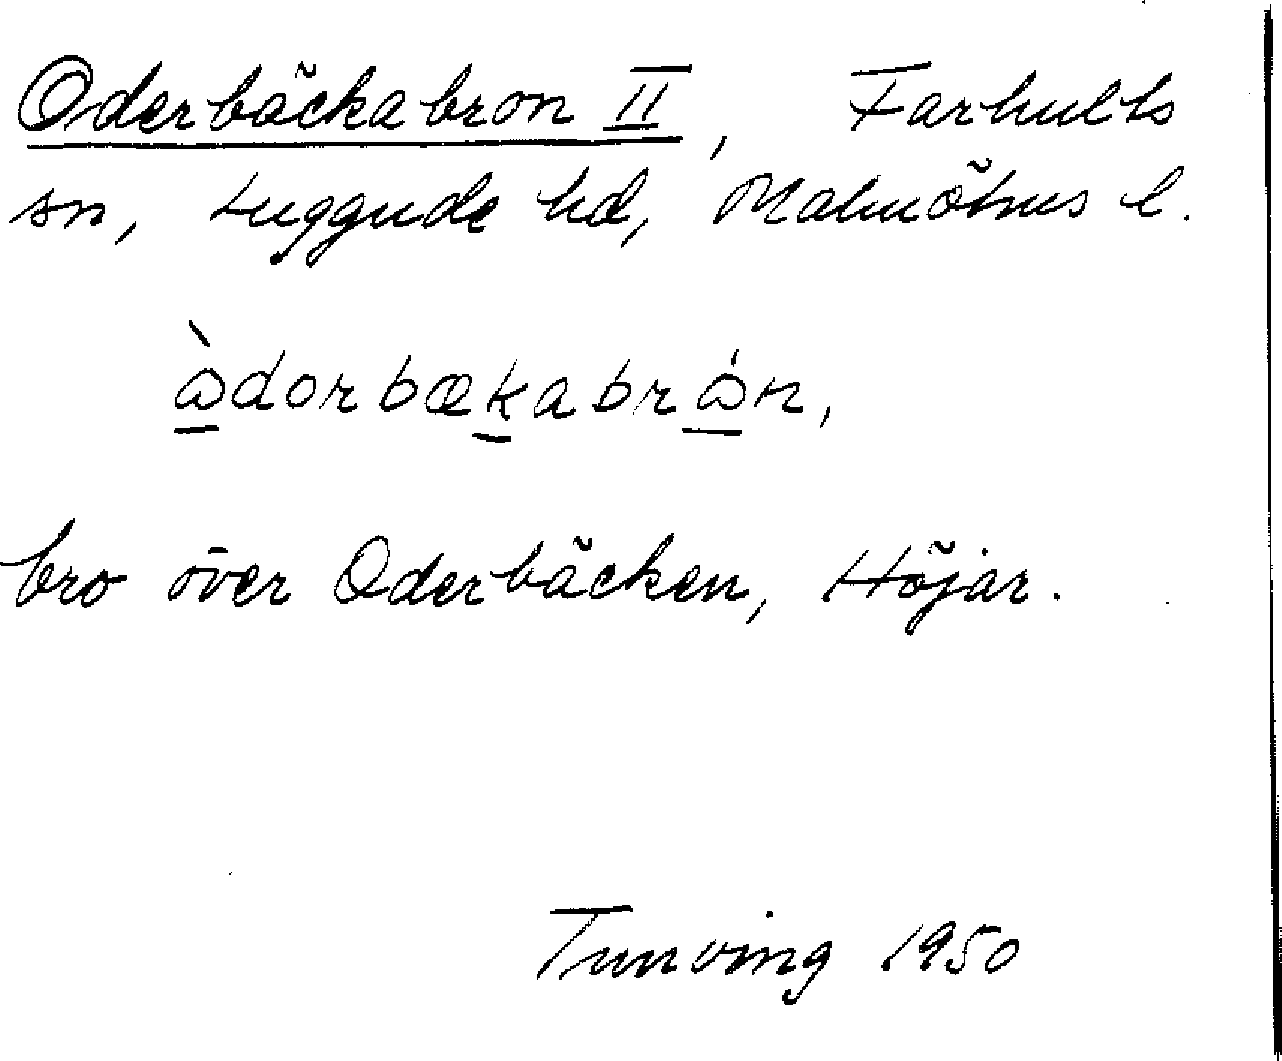 Oderbäckabron II, Farhults
sn, Luggude hd, Malmöhus l.
ꞷ̀dorbækabrꞷ́n,
bro över Oderbäcken, Höjar.
Tunving 1950